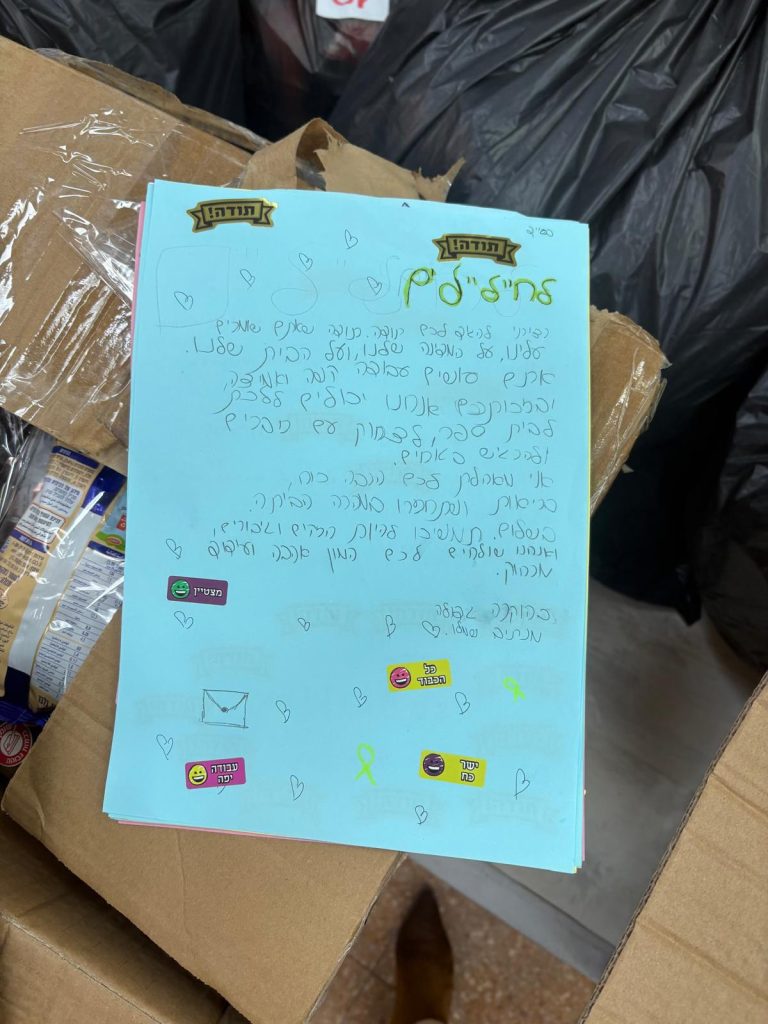 תודה!
בס"ד
תודה!
לחיילים
רציתי להגיד לכם תודה. תודה שאתם שומרים
עלינו, על המדינה שלנו, ועל הבית שלנו.
אתם עושים עבודה קשה ואמיצה,
ובזכותכם אנחנו יכולים ללכת
לבית ספר, לצחוק עם חברים
ולהרגיש בטוחים.
אני מאחלת לכם הרבה כוח,
בריאות ושתחזרו במהרה הביתה
בשלום. תמשיכו להיות חזקים וגיבורים,
ואנחנו שולחים לכם המון אהבה וחיבוק
מרחוק.
בהוקרה גדולה
מצטיין
כל
הכבוד
עבודה
יפה
ישר
כח